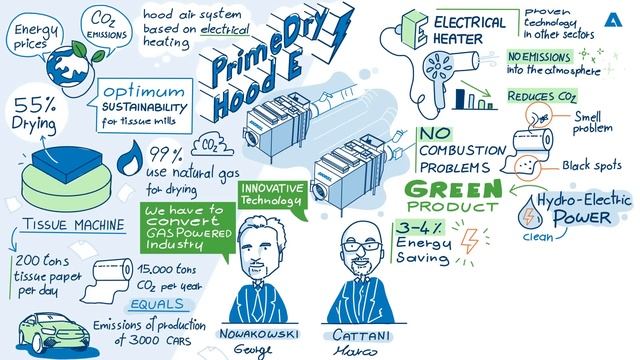 Energy
prices
CO2
EMISSIONS
hood air system
based on electrical
heating
PrimeDry
Hood E
E ELECTRICAL
HEATER
proven
technology
in other sectors
NO EMISSIONS
into the atmosphere
REDUCES CO2
Smell
problem
Black spots
NO
COMBUSTION
PROBLEMS
GREEN
PRODUCT
Hydro-Electric
POWER
clean
3-4%
Energy
Saving
optimum
SUSTAINABILITY
for tissue mills
55%
Drying
CO2
99%
use natural gas
for drying
TISSUE MACHINE
INNOVATIVE
Technology
We have to
convert
GAS POWERED
Industry
200 tons
tissue paper
per day
15,000 tons
CO2 per year
EQUALS
Emissions of production
of 3000 CARS
NOWAKOWSKI
George
CATTANI
Marco